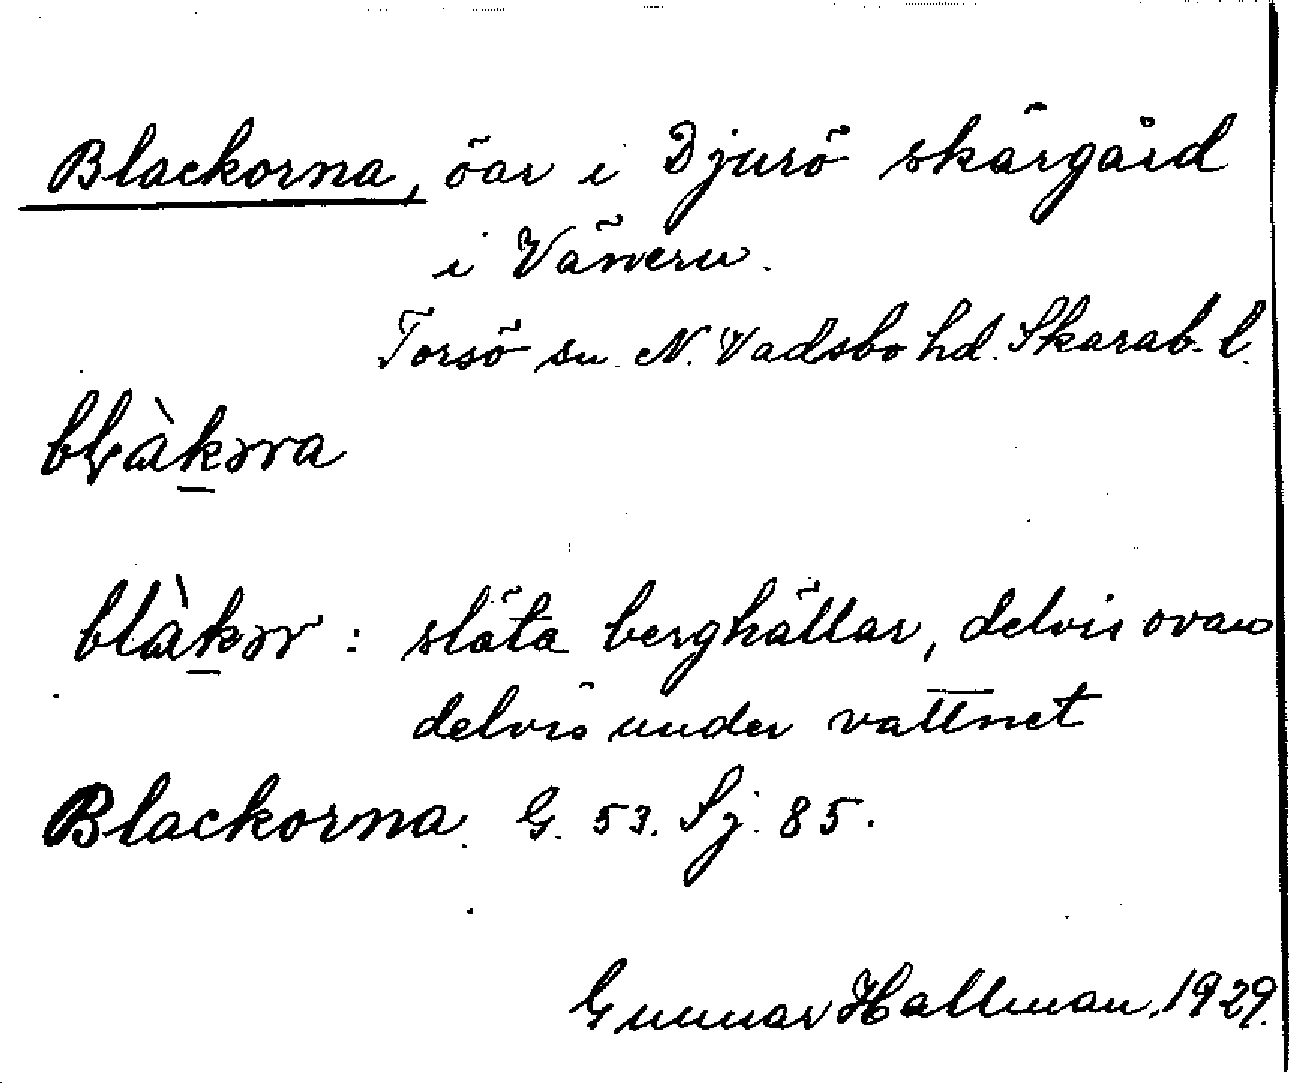 Blackorna, öar i Djurö skärgård
i Vänern.
Torsö sn. N. Vadsbo hd. Skarab. l.
blàkɔra
blàkɔr : släta berghällar, delvis ovan
delvis under vattnet
Blackorna. G. 53. Sj. 85.
Gunnar Hallman, 1929.